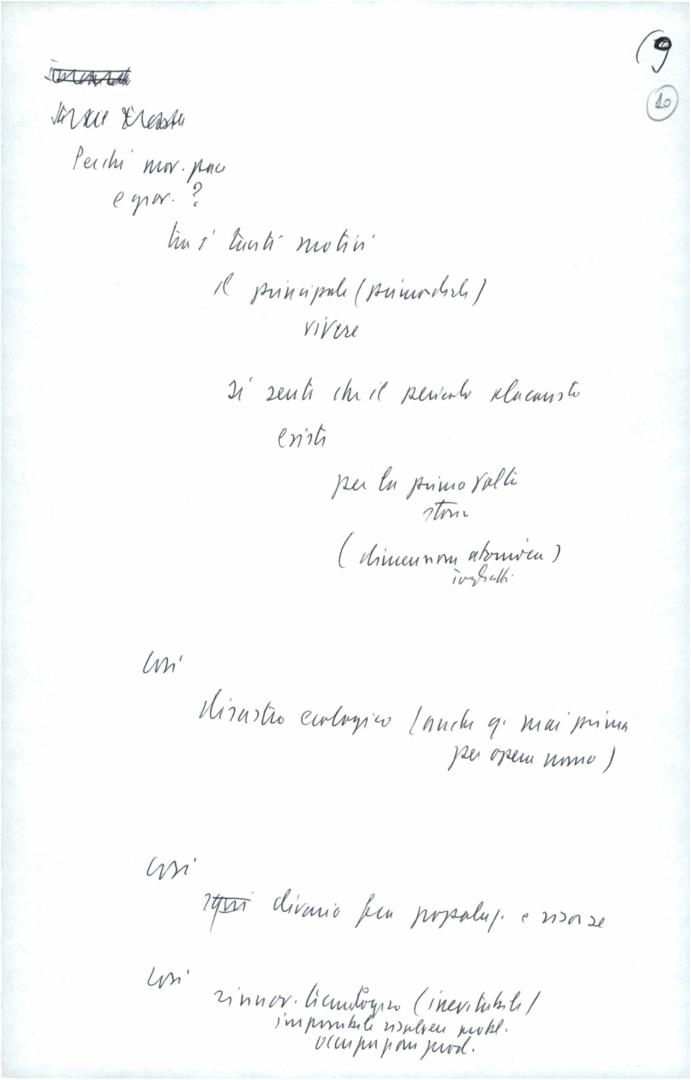 9
10
Perchi mov. pace
e giov. ?
tra i tanti motivi
il principale (primordiale)
vivere
si sente che il pericolo olocausto
esiste
per la prima volta
storia
(dimensione atomica)
togliatti
così
disastro ecologico (anche q. mai prima
per opera uomo)
così
divario fra popolaz. e risorse
così
rinnov. tecnologico (inevitabile)
impossibile risolvere probl.
occupazione prod.